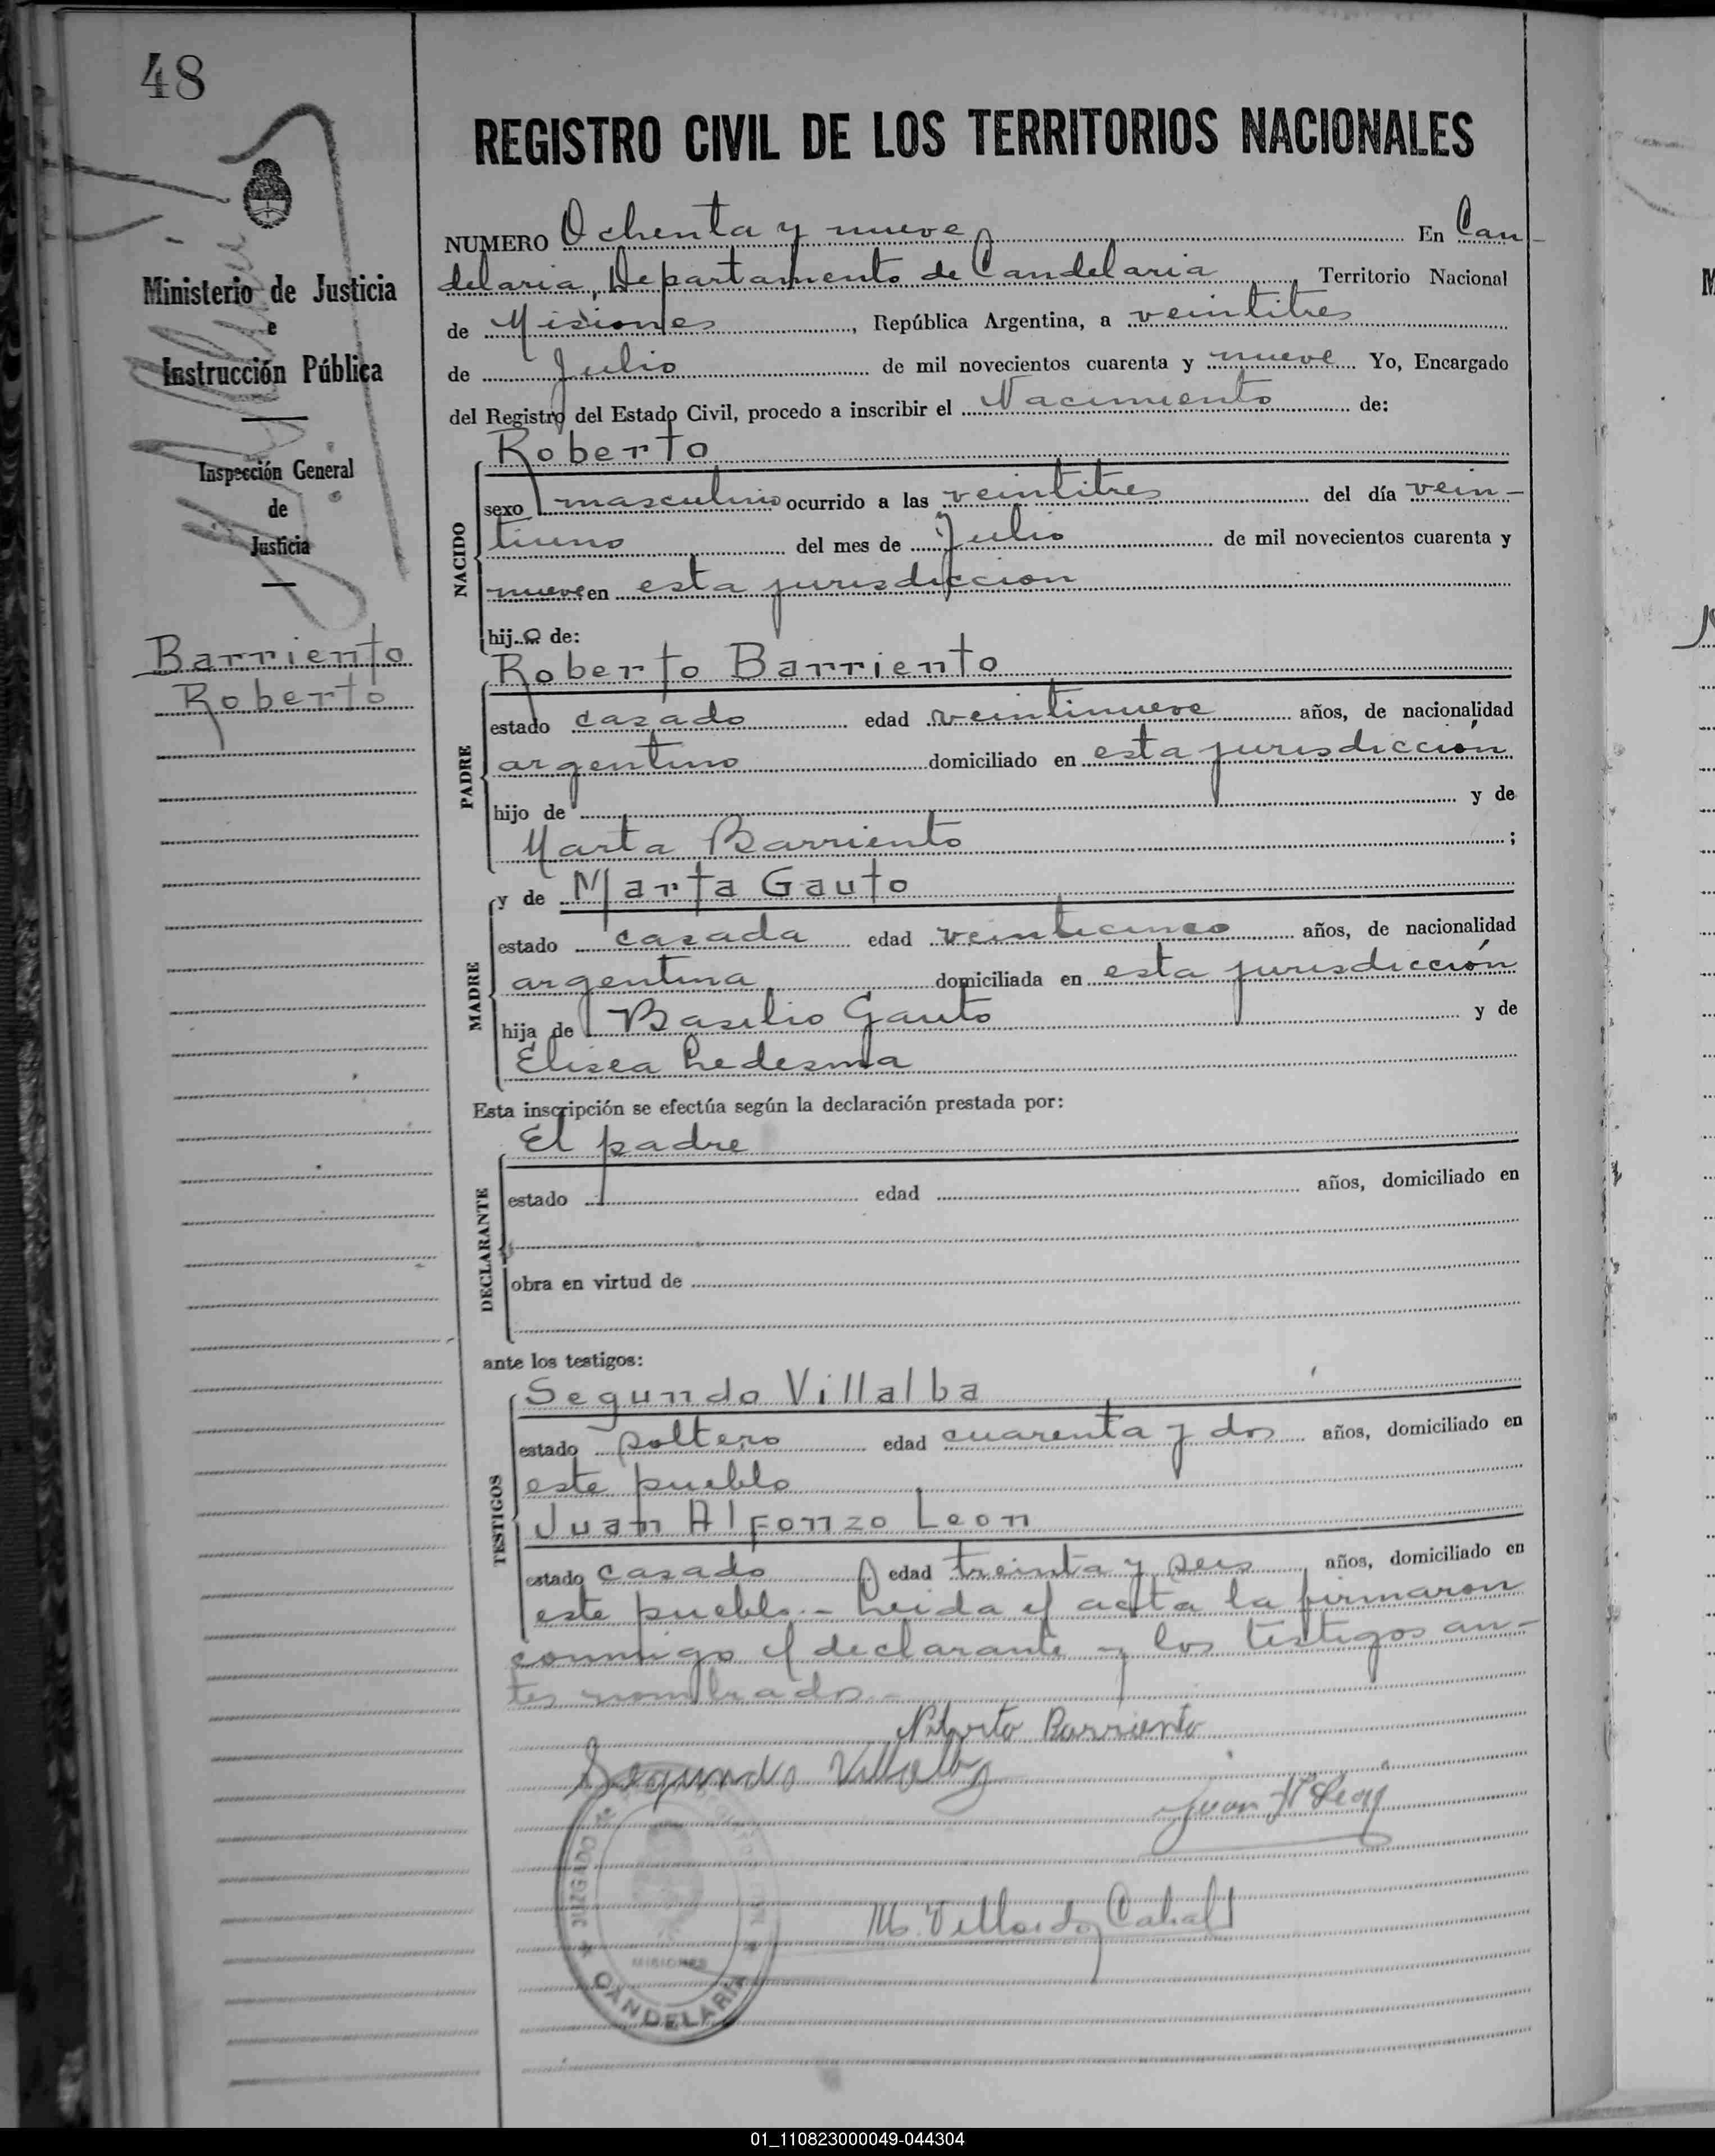 48
REGISTRO CIVIL DE LOS TERRITORIOS NACIONALES
NUMERO Ochenta y nueve En Can-
delaria, Departamento de Candelaria Territorio Nacional
de Misiones, República Argentina, a veintitres
de Julio de mil novecientos cuarenta y nueve Yo, Encargado
del Registro del Estado Civil, procedo a inscribir el Nacimiento de:
Ministerio de Justicia
e
Instrucción Pública
Inspección General
de
Justicia
Barriento
Roberto
NACIDO
Roberto
sexo masculino ocurrido a las veintitres del día vein-
tiuno del mes de Julio de mil novecientos cuarenta y
nueve en esta jurisdiccion
hijo de:
PADRE
Roberto Barriento
estado casado edad veintinueve años, de nacionalidad
argentino domiciliado en esta jurisdicción
hijo de y de
Marta Barriento ;
MADRE
y de Marta Gauto
estado casada edad veinticinco años, de nacionalidad
argentina domiciliada en esta jurisdicción
hija de Basilio Gauto y de
Elisea Ledesma
Esta inscripción se efectúa según la declaración prestada por:
DECLARANTE
El padre
estado edad años, domiciliado en
obra en virtud de
ante los testigos:
TESTIGOS
Segundo Villalba
estado soltero edad cuarenta y dos años, domiciliado en
este pueblo
Juan Alfonzo Leon
estado casado edad treinta y seis años, domiciliado en
este pueblo.- Leida el acta la firmaron
conmigo el declarante y los testigos an-
tes nombrados.-
Roberto Barriento
Segundo Villalba
Juan A Leon
JUZGADO
MISIONES
CANDELARIA
01_110823000049-044304